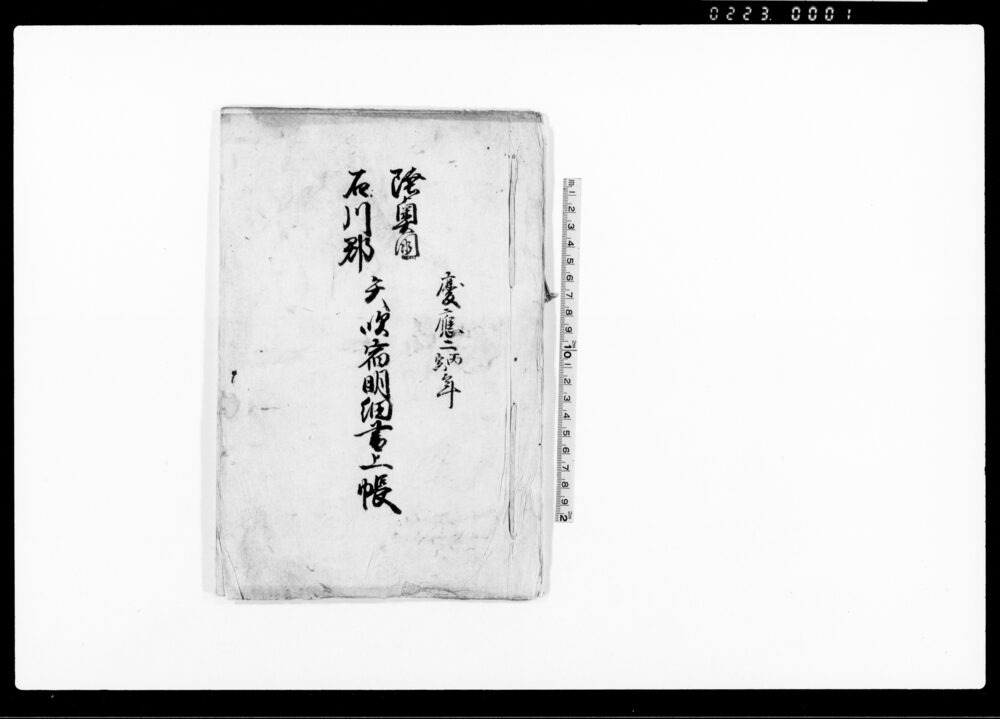 0223. 0001
慶應二丙寅年
陸奥国
石川郡
矢吹宿明細書上帳
1 2 3 4 5 6 7 8 9 10 1 2 3 4 5 6 7 8 9 2